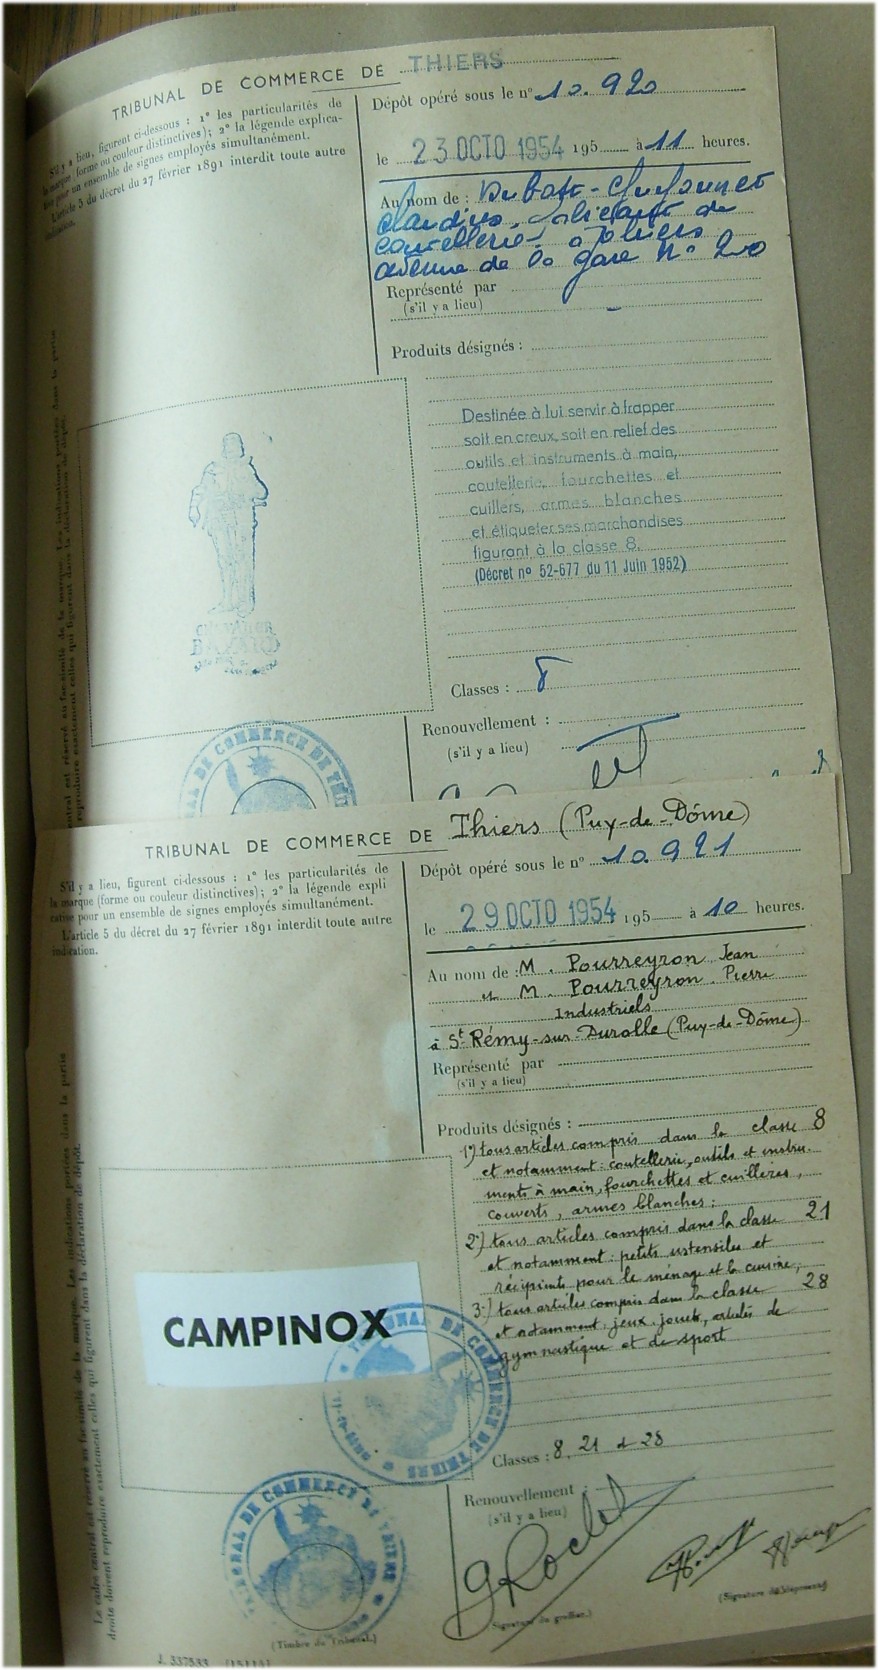 TRIBUNAL DE COMMERCE DE THIERS
S'il y a lieu, figurent ci-dessous : 1° les particularités de
la marque (forme ou couleur distinctives); 2° la légende explica-
pour un ensemble de signes employés simultanément.
L'article 5 du décret du 27 février 1891 interdit toute autre
indication.
Dépôt opéré sous le n° 10.920
le 23 OCTO 1954 195 à 11 heures.
Au nom de : Dubost-
Claudius. fabricant de
coutellerie à Thiers
avenue de la gare N° 200
Représenté par
(s'il y a lieu)
Produits désignés :
Destinée à lui servir à frapper
soit en creux, soit en relief des
outils et instruments à main,
coutellerie, fourchettes et
cuillers, armes blanches
et étiqueter ses marchandises
figurant à la classe 8.
(Décret n° 52-677 du 11 Juin 1952)
BAYARD
Classes : 8
Renouvellement :
(s'il y a lieu)
DE COMMERCE DE THI
TRIBUNAL DE COMMERCE DE Thiers (Puy-de-Dôme)
S'il y a lieu, figurent ci-dessous : 1° les particularités de
la marque (forme ou couleur distinctives); 2° la légende expli
cative pour un ensemble de signes employés simultanément.
L'article 5 du décret du 27 février 1891 interdit toute autre
indication.
Dépôt opéré sous le n° 10.921
le 29 OCTO 1954 195 à 10 heures.
Au nom de : M. Pourreyron Jean
et M. Pourreyron Pierre
Industriels
à St Rémy-sur-Durolle (Puy-de-Dôme)
Représenté par
(s'il y a lieu)
Produits désignés :
1°) tous articles compris dans la classe 8
et notamment : coutellerie, outils et instru-
ments à main, fourchettes et cuillères,
couverts, armes blanches ;
2°) tous articles compris dans la classe 21
et notamment : petits ustensiles et
récipients pour le ménage et la cuisine,
3°) tous articles compris dans la classe 28
et notamment, jeux, jouets, articles de
gymnastique et de sport
CAMPINOX
TRIBUNAL DE COMMERCE DE THIERS
Classes : 8, 21 et 28
Renouvellement :
(s'il y a lieu)
TRIBUNAL DE COMMERCE DE THIERS
(Timbre du Tribunal.)
(Signature du greffier.)
Le cadre central est réservé au fac-similé de la marque. Les indications portées dans la partie
droite doivent reproduire exactement celles qui figurent dans la déclaration de dépôt.
J. 337533